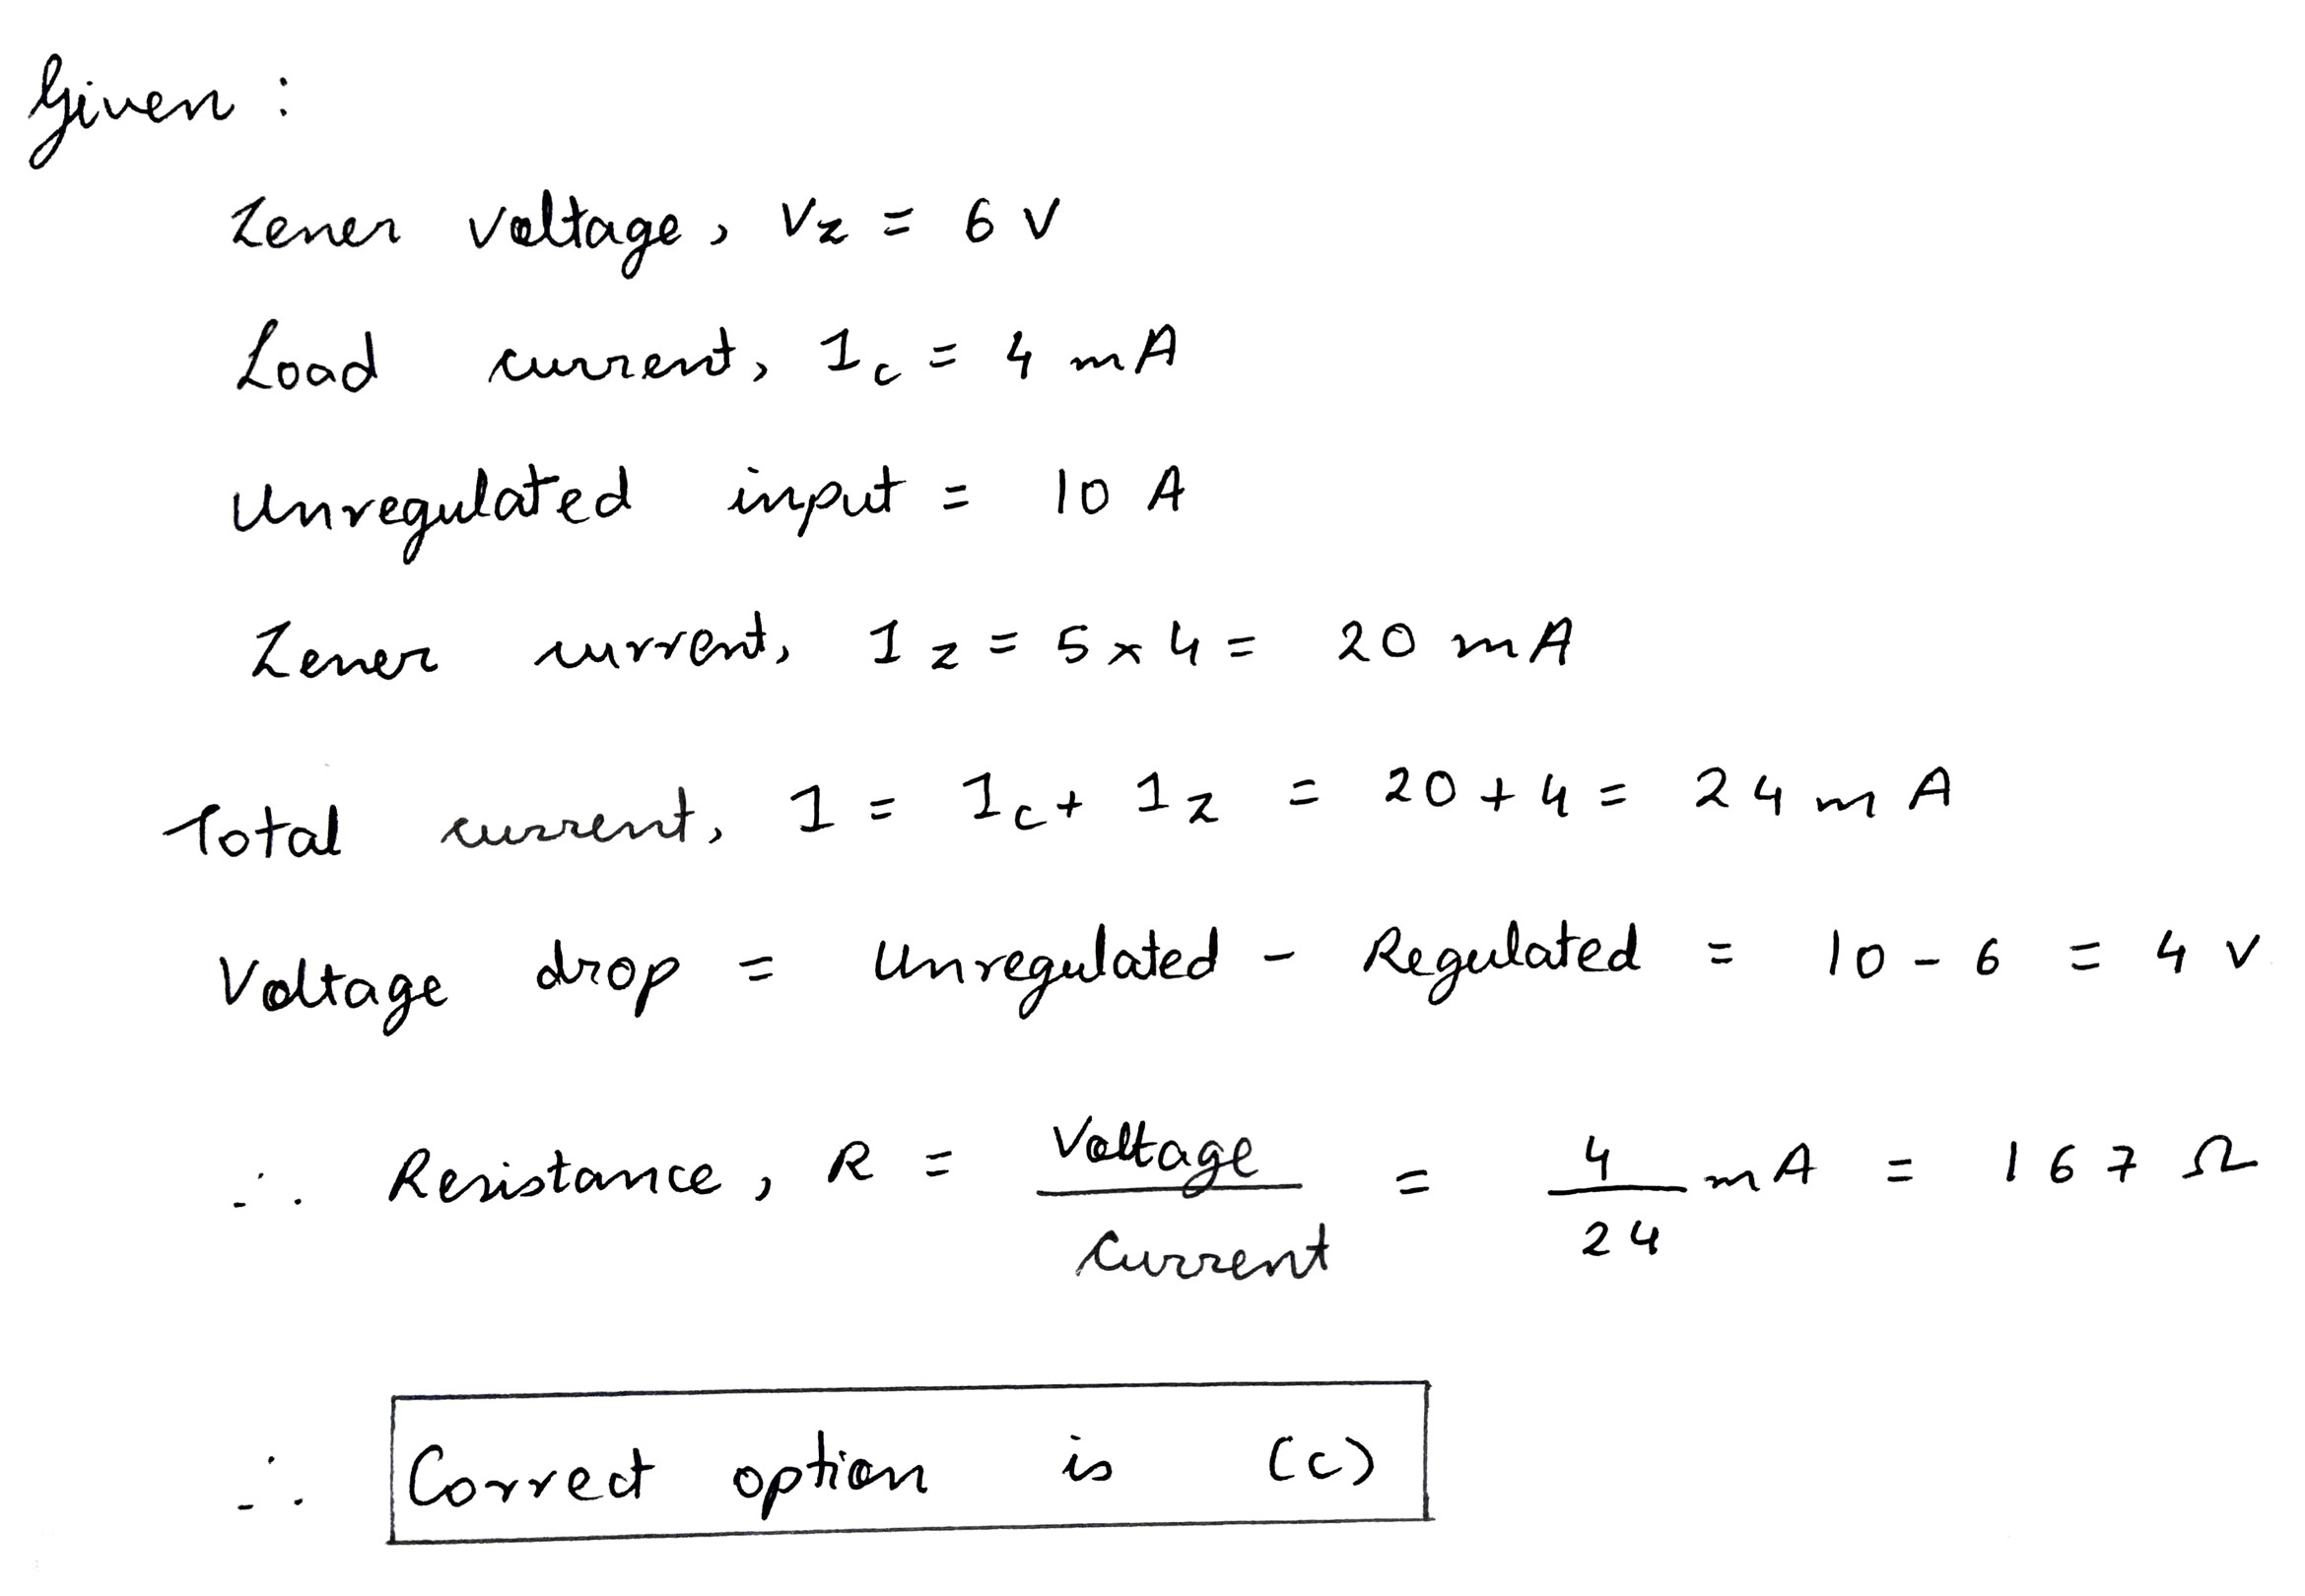 Given :
Zener voltage, Vz = 6 V
Load current, Ic = 4 mA
Unregulated input = 10 A
Zener current, Iz = 5 x 4 = 20 mA
Total current, I = Ic + Iz = 20 + 4 = 24 mA
Voltage drop = Unregulated - Regulated = 10 - 6 = 4 V
∴ Resistance, R = Voltage / Current = 4 / 24 mA = 167 Ω
∴ Correct option is (c)